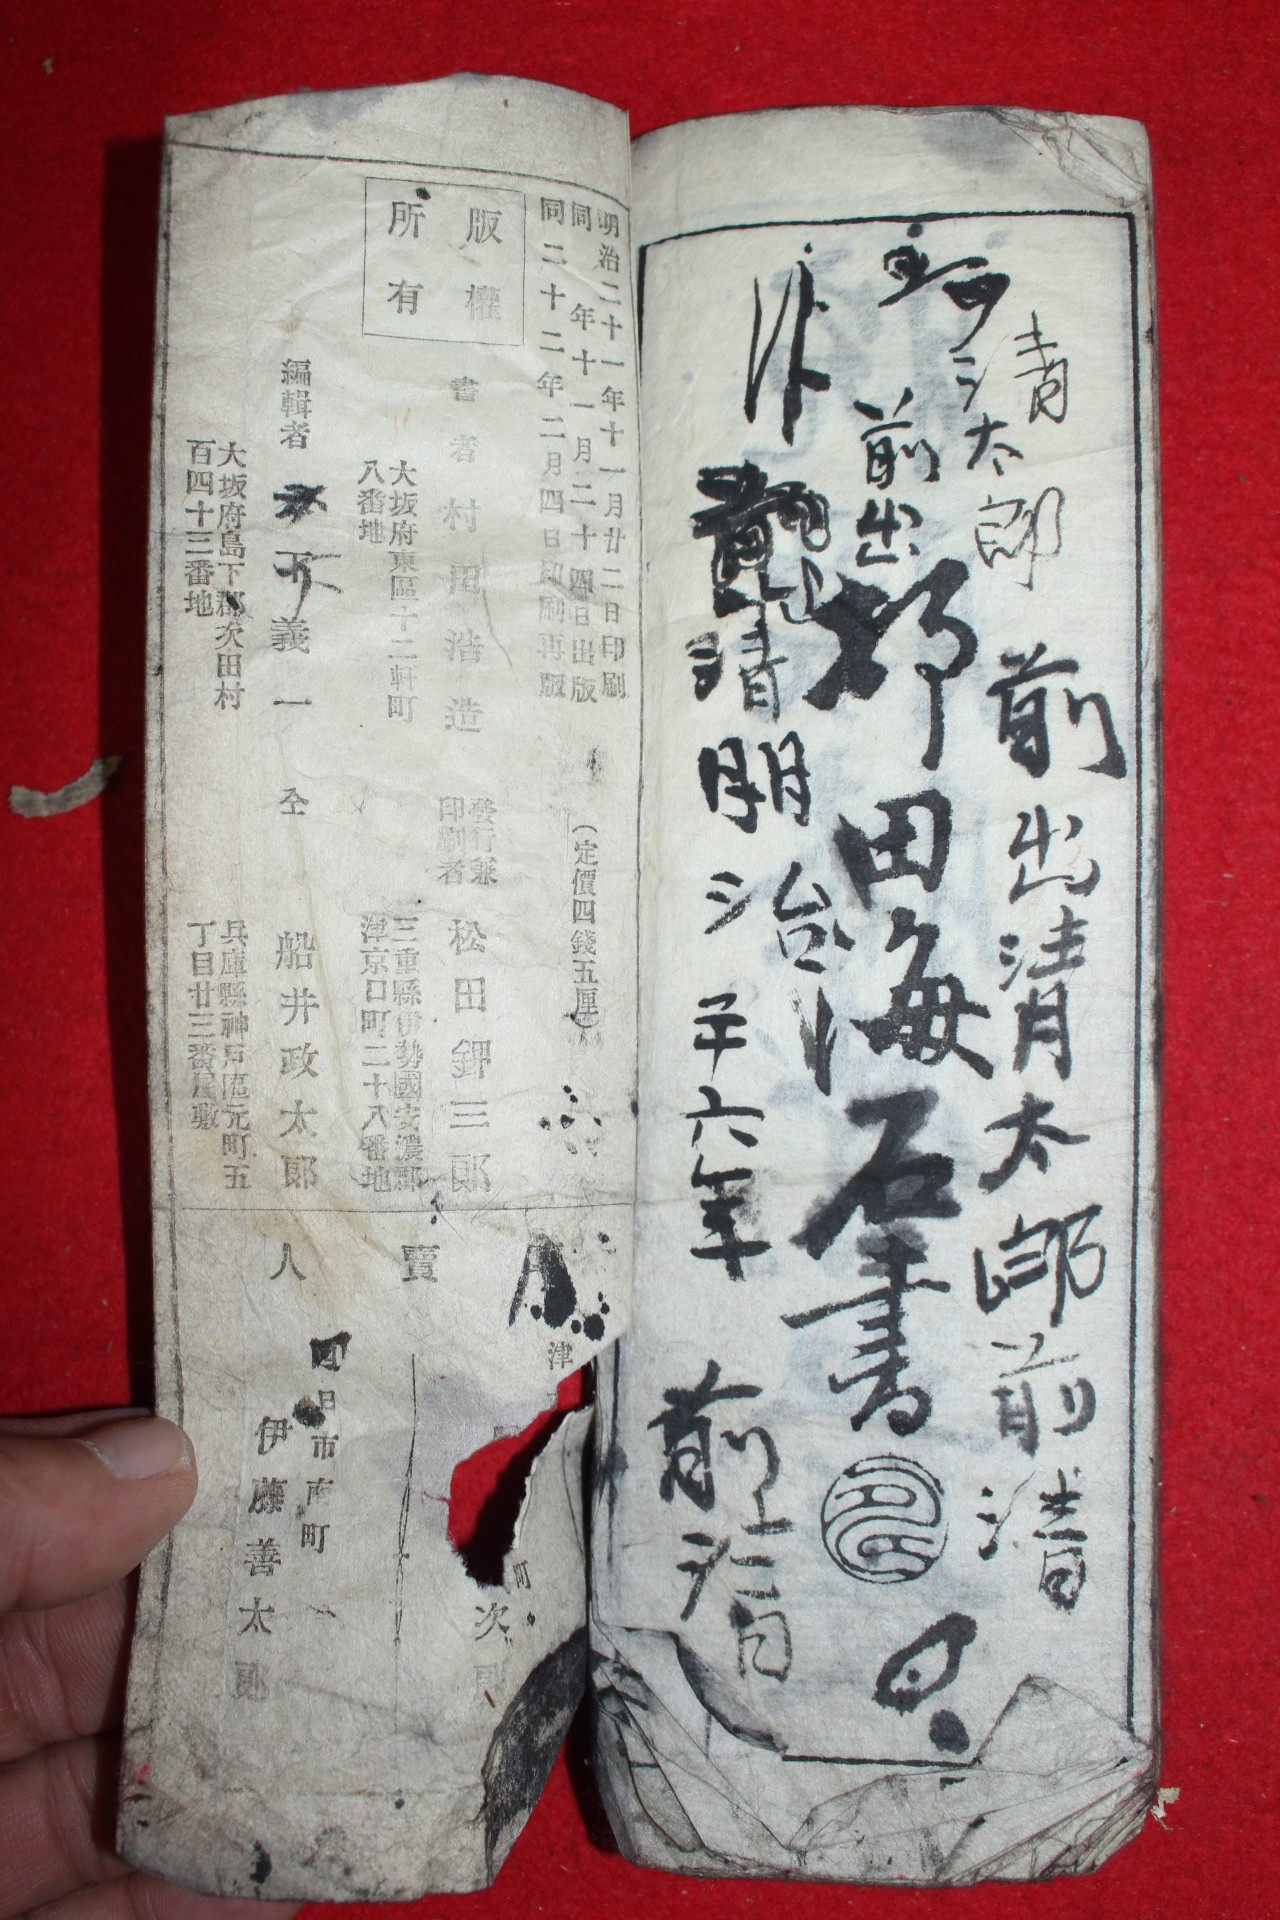 清太郎
前出清太郎
前清
前出
村田海石書
明治
二十六年
前清
前清
明治二十一年十一月廿二日印刷
同年十一月二十四日出版
同二十二年二月四日印刷再版
(定價四錢五厘)
版權
所有
書者
村田浩造
大坂府東區十二軒町
八番地
編輯者
木下義一
大坂府島下郡次田村
百四十三番地
發行兼
印刷者
松田鉀三郎
三重縣伊勢國安濃郡
津京口町二十八番地
仝
船井政太郎
兵庫縣神戸區元町五
丁目廿三番屋敷
賣
人
津
町
次郎
四日市南町
伊藤善太郎